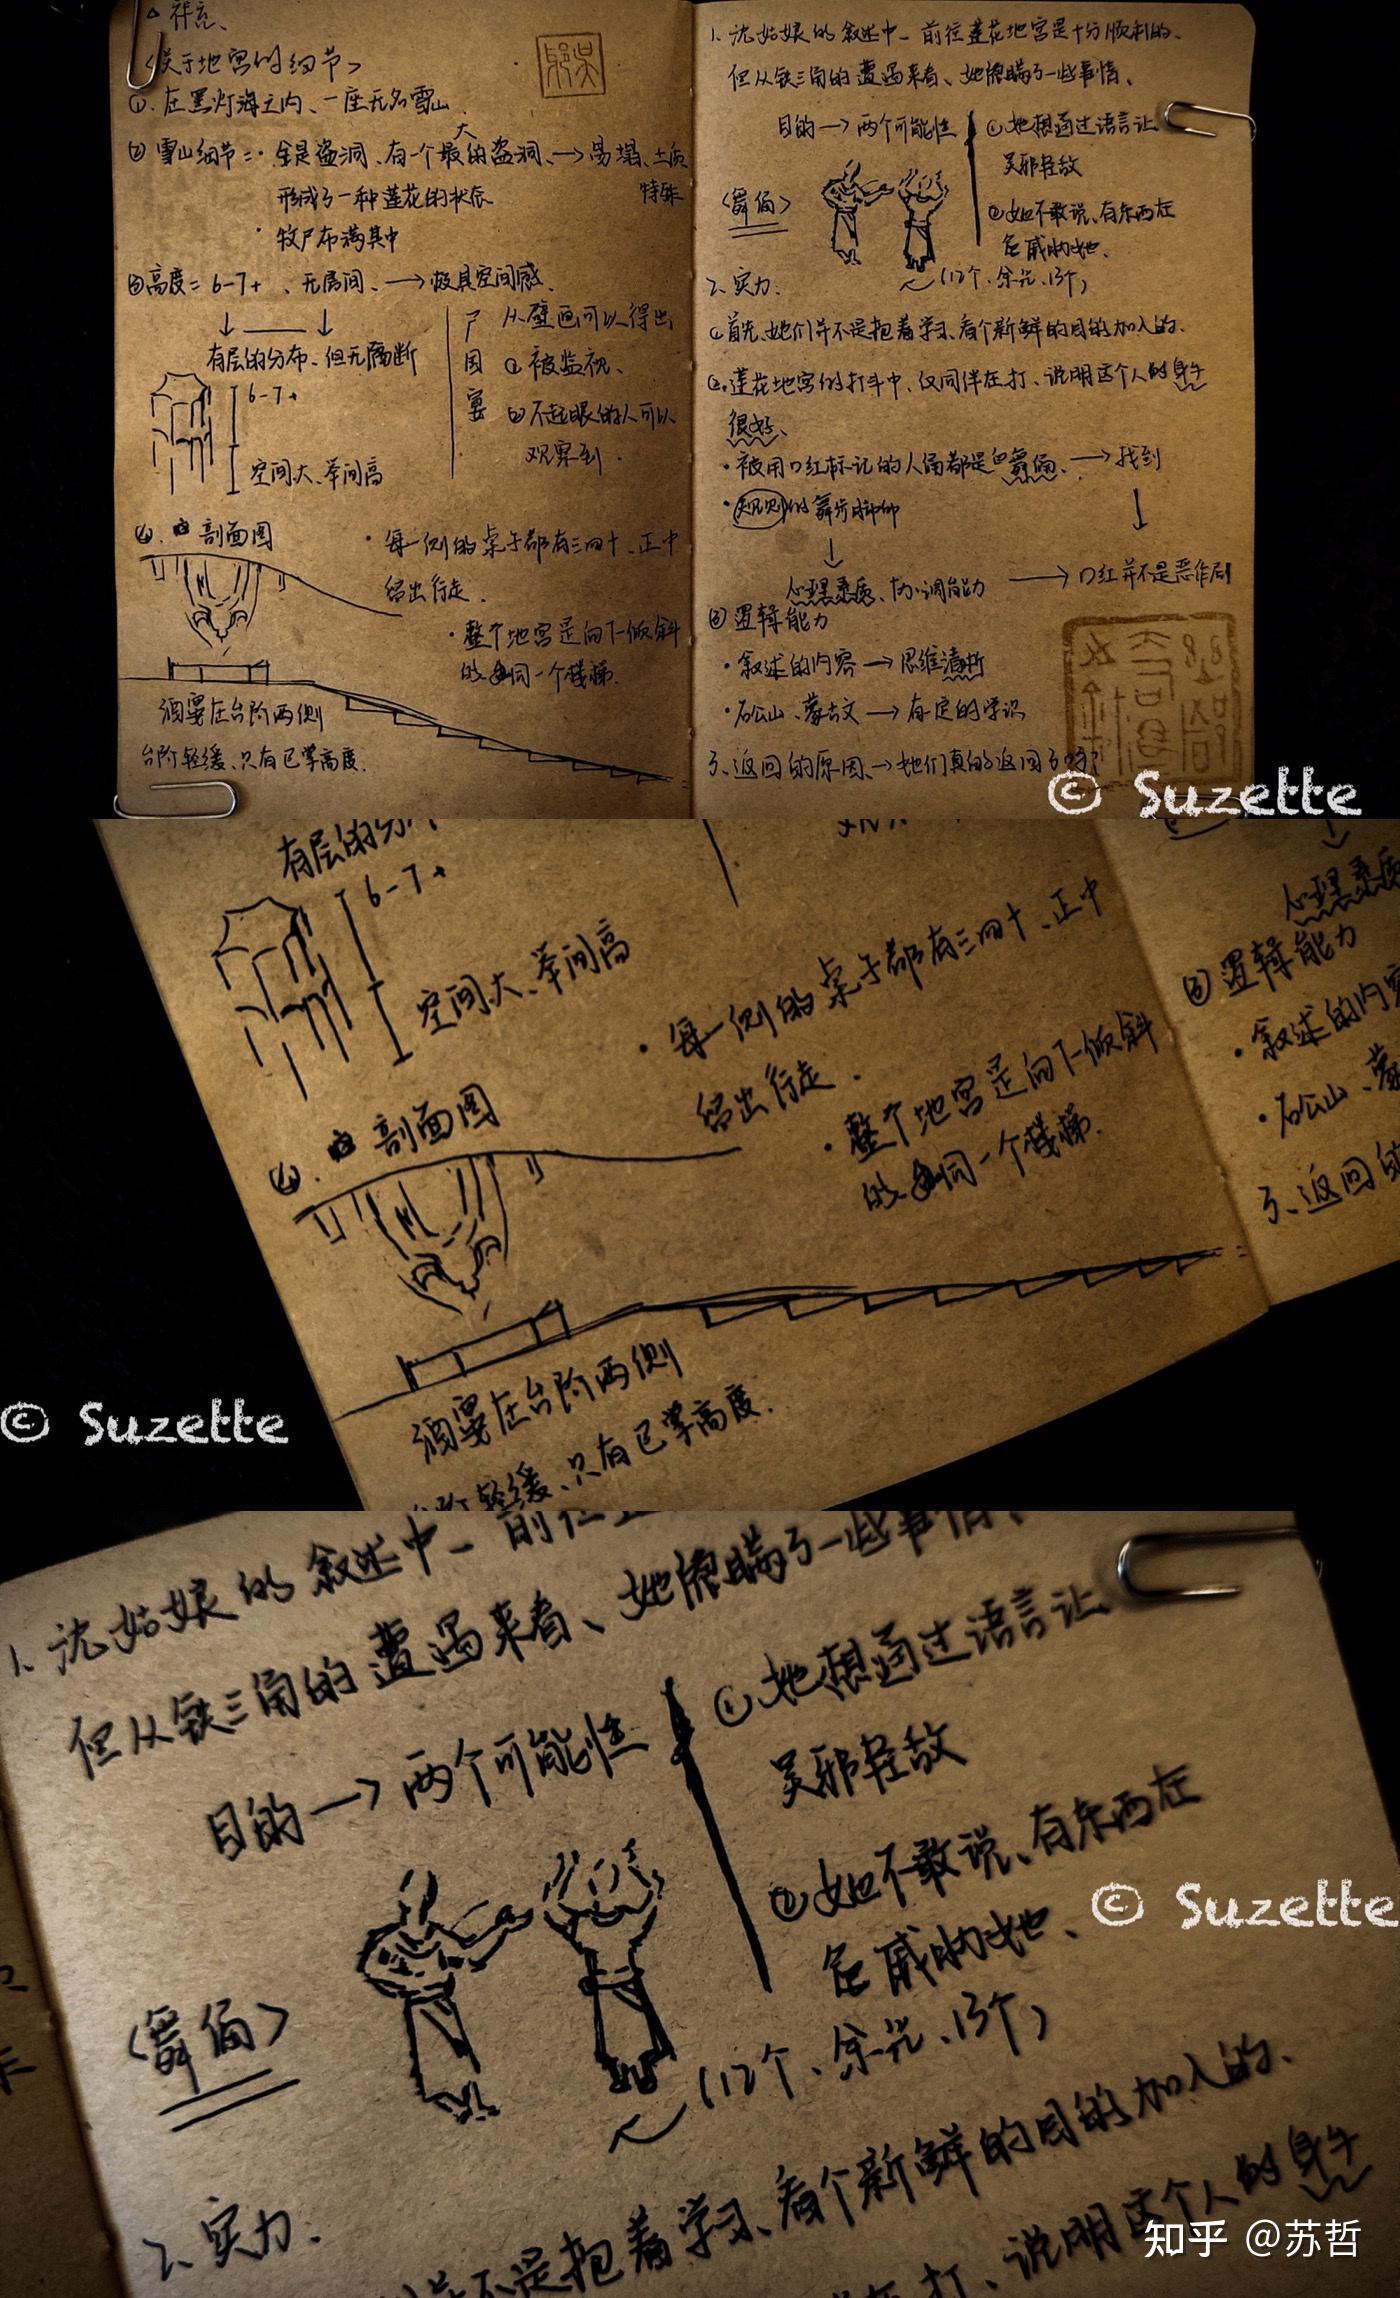 补充、
<关于地宫的细节>
①. 在黑灯海之内、一座无名雪山
② 雪山细节=· 全是盗洞、有一个最大的盗洞、→易塌、土质特殊
形成了一种莲花的状态
· 牧尸布满其中
③高度= 6-7+ 、无房间、→极具空间感、
有层的分布、但无隔断
6-7+
空间大、举间高
尸国宴
从壁画可以得出
① 被监视、
② 不起眼的人可以
观察到.
④. 剖面图
· 每一侧的桌子都有三四十、正中
给出行走.
· 整个地宫是向下倾斜
的、如同一个楼梯.
酒宴在台阶两侧
台阶轻缓、只有巴掌高度.
1. 沈姑娘的叙述中、前往莲花地宫是十分顺利的、
但从铁三角的遭遇来看、她隐瞒了一些事情、
目的→两个可能性
①她想通过语言让
吴邪轻敌
②她不敢说、有东西在
危威胁她、
<舞俑>
(12个、余光、13个)
2. 实力.
①首先、她们并不是抱着学习、看个新鲜的目的加入的、
②.莲花地宫的打斗中、仅同伴在打、说明这个人的身手
很好、
·被用口红标记的人俑都是舞俑、→找到
·规则的舞步
心理素质、协调能力 → 口红并不是恶作剧
③ 逻辑能力
·叙述的内容→思维清晰
·石公山、蒙古文→有一定的学识
3、返回的原因、→她们真的返回了吗?
© Suzette
有层的分
6-7+
空间大、举间高
· 每一侧的桌子都有三四十、正中
给出行走.
· 整个地宫是向下倾斜
的、如同一个楼梯.
④. 剖面图
酒宴在台阶两侧
轻缓、只有巴掌高度.
心理素质
③ 逻辑能力
·叙述的内容
·石公山、蒙
3、返回的
© Suzette
1. 沈姑娘的叙述中、前往
但从铁三角的遭遇来看、她隐瞒了一些事情、
目的→两个可能性
①她想通过语言让
吴邪轻敌
②她不敢说、有东西在
危威胁她、
© Suzette
<舞俑>
(12个、余光、13个)
2. 实力.
不是抱着学习、看个新鲜的目的加入的、
在打、说明这个人的身手
知乎 @苏哲